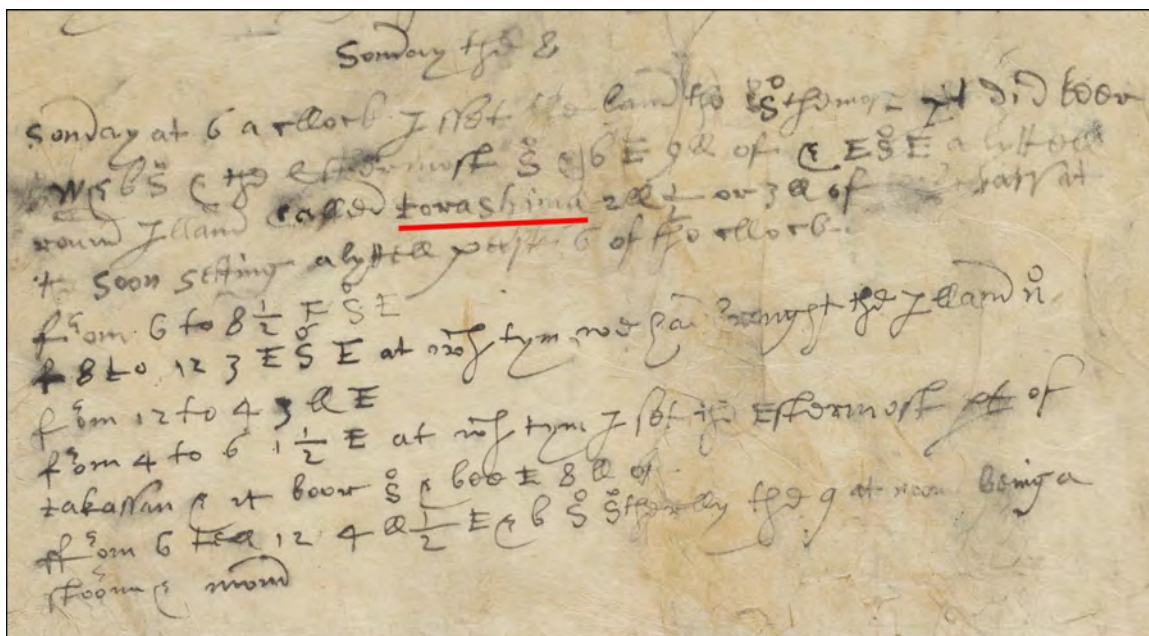 Sonday the 8
Sonday at 6 a cllock I sset the land the Sthermost pt did beer
W & b S & the Estermost S & b E 9 ll of & E S E a lyttell
round Illand called torashima 2 ll ½ or 3 ll of
soon setting a lyttell past 6 of the cllock
from 6 to 8 ½ E S E
f 8 to 12 3 E S E at wch tym we had brought the Illand n
from 12 to 4 3 ll E
from 4 to 6 1 ½ E at wch tym I set the Estermost pt of
takassan & it beer S & bee E 8 ll of
ffrom 6 12 4 ll ½ E & b S Stherlly the 9 at noon being a